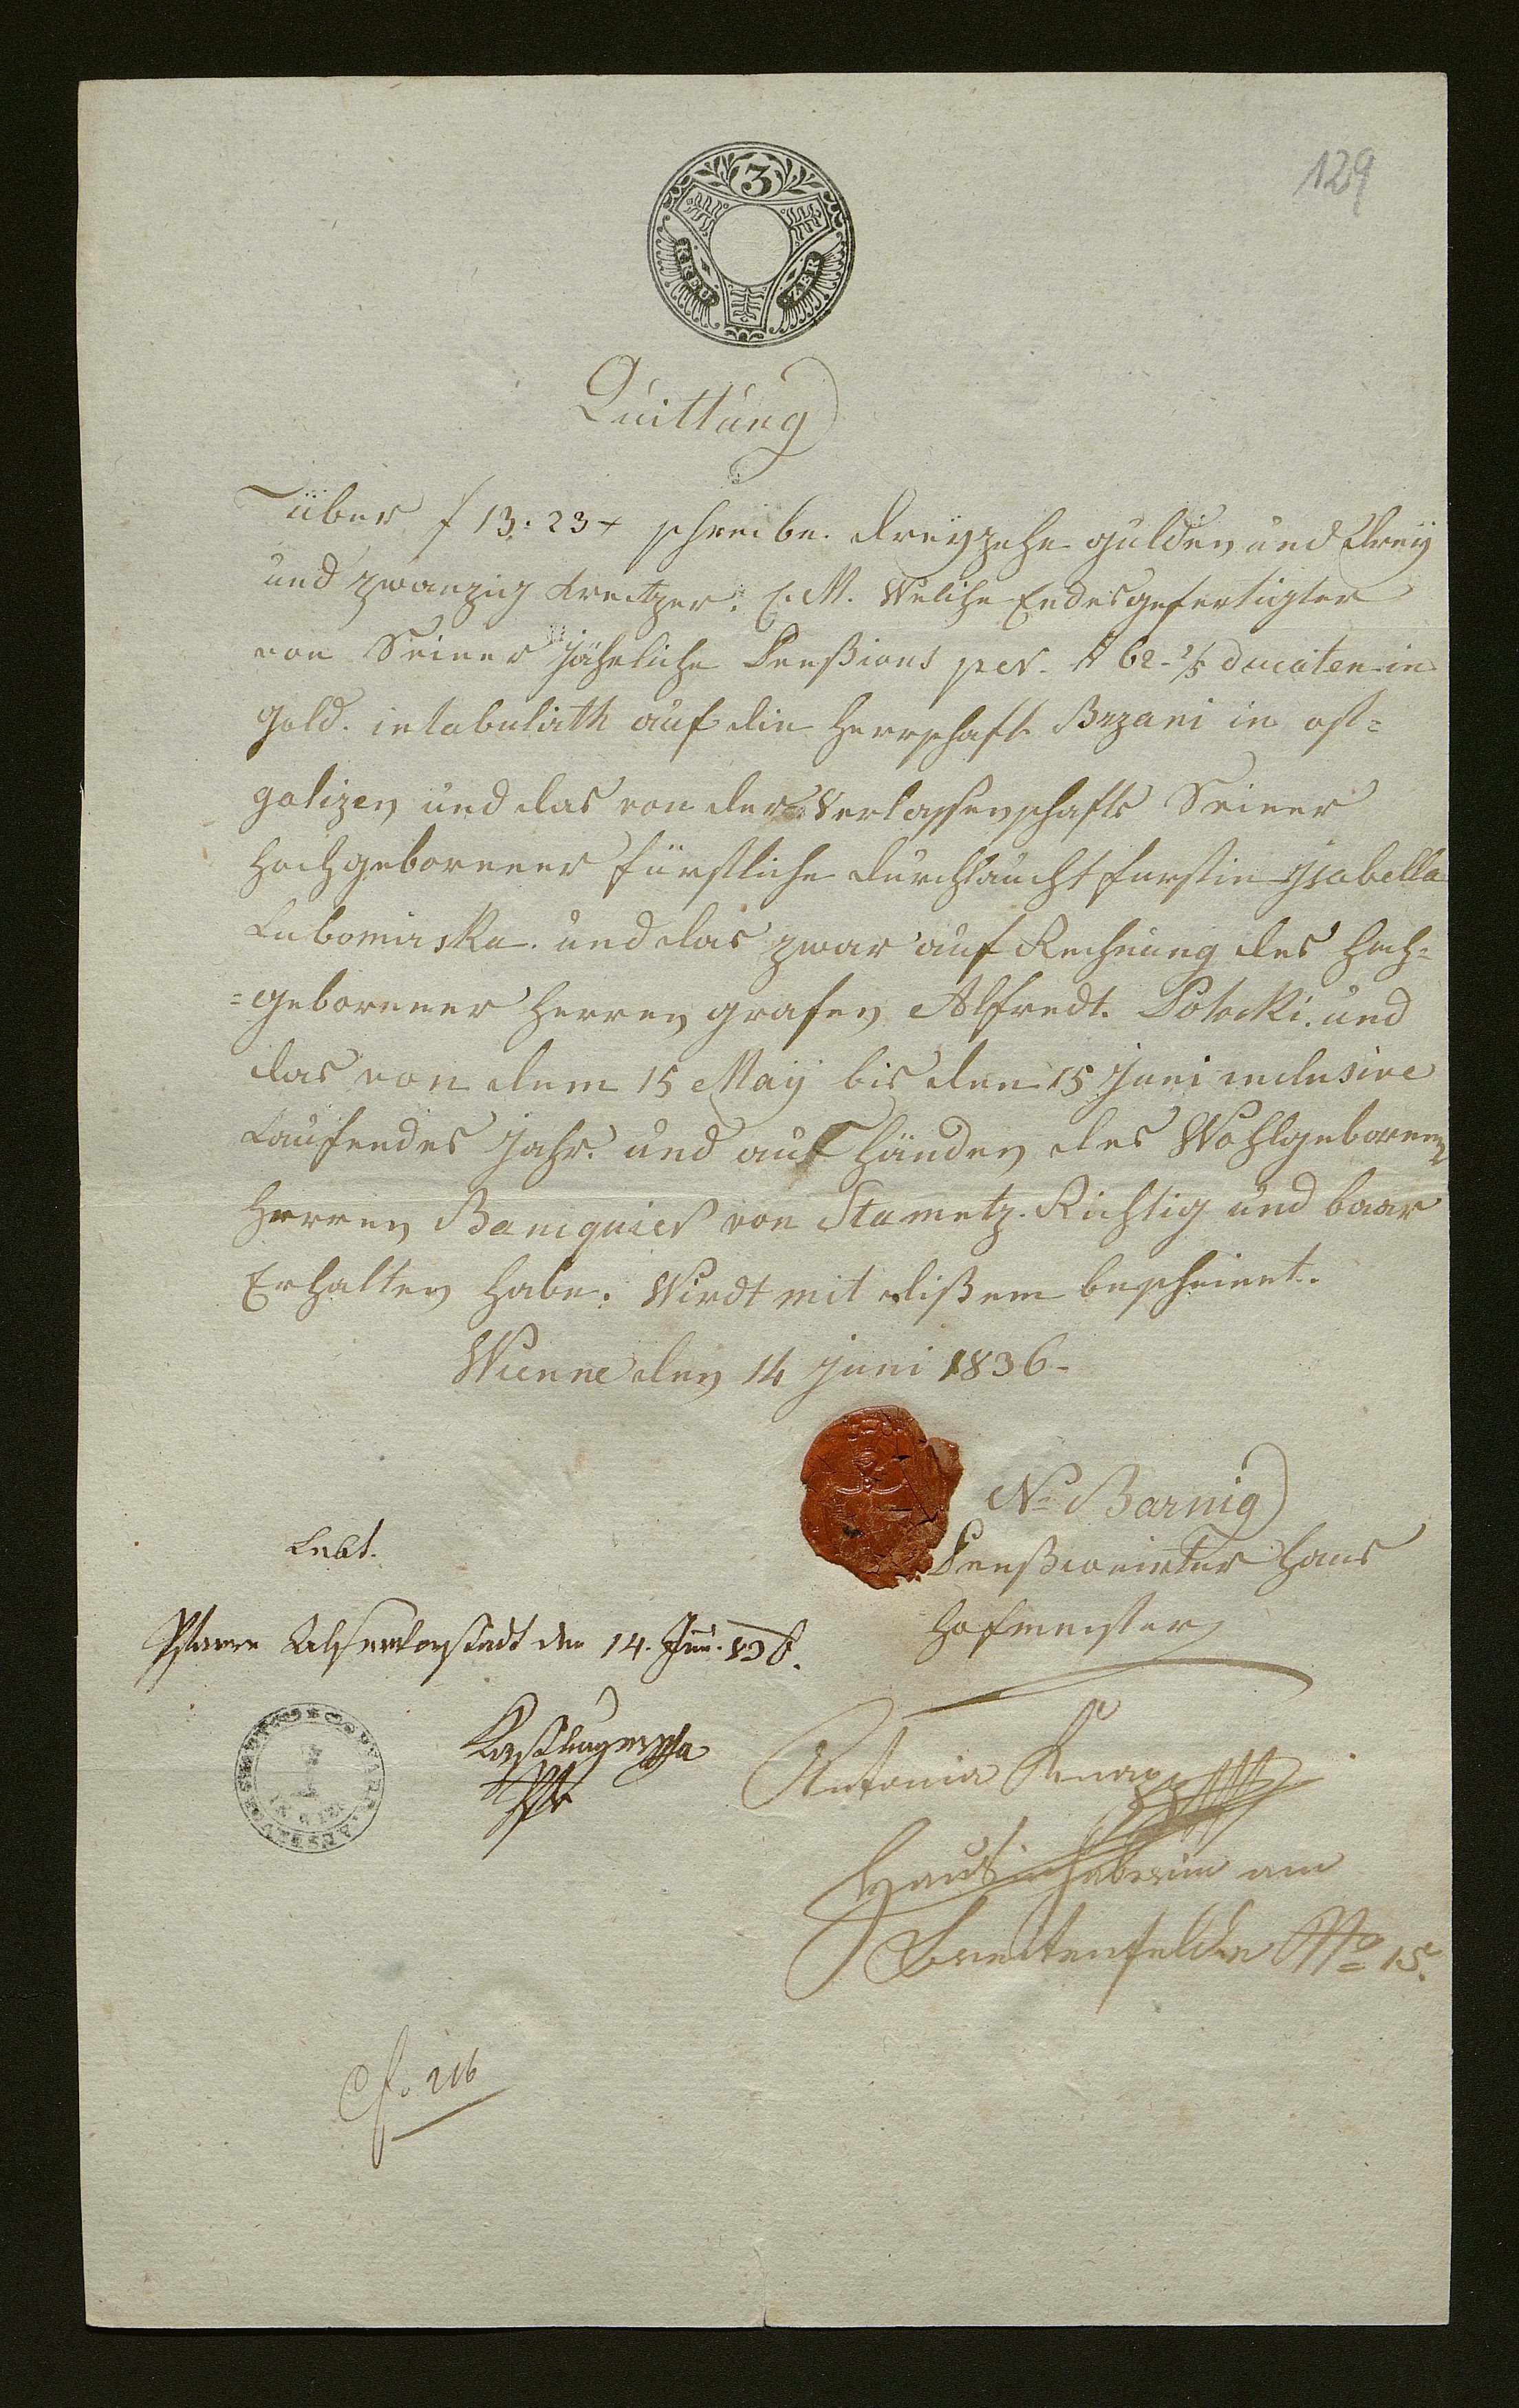 129
3
KREU ZER
Quittung
über f 13: 23 x schreibe. dreyzehn gulden und drey
und zwanzig Kreitzer. C. M. Welche Endesgefertigter
von Seiner jährliche Penßions per # 62 ducaten in
gold. intabulath auf die Herrschaft Brzani in ost=
galizen und das von der Verlassenschafts Seiner
Hochgeborener fürstliche durchlaucht furstin Ysabella
Lubomirska. und das zwar auf Rechnung des Hoch=
=geborener Herren grafen Alfredt. Potocki. und
das von dem 15 May bis den 15 Juni inclusive
Laufendes Jahr. und aus Händen des Wohlgeboren
Herren Banquier von Stametz. Richtig und baar
Erhalten habe. Wirdt mit dißem bescheient.
Wienne den 14 Juni 1836-
N= Barnig
Penßionirter Haus
Hofmeister
Lebt.
Pfarre Alservorstadt den 14. Jun. 836.
Antonia Knapp
Hausinhaberin am
Breitenfelde No 15.
216